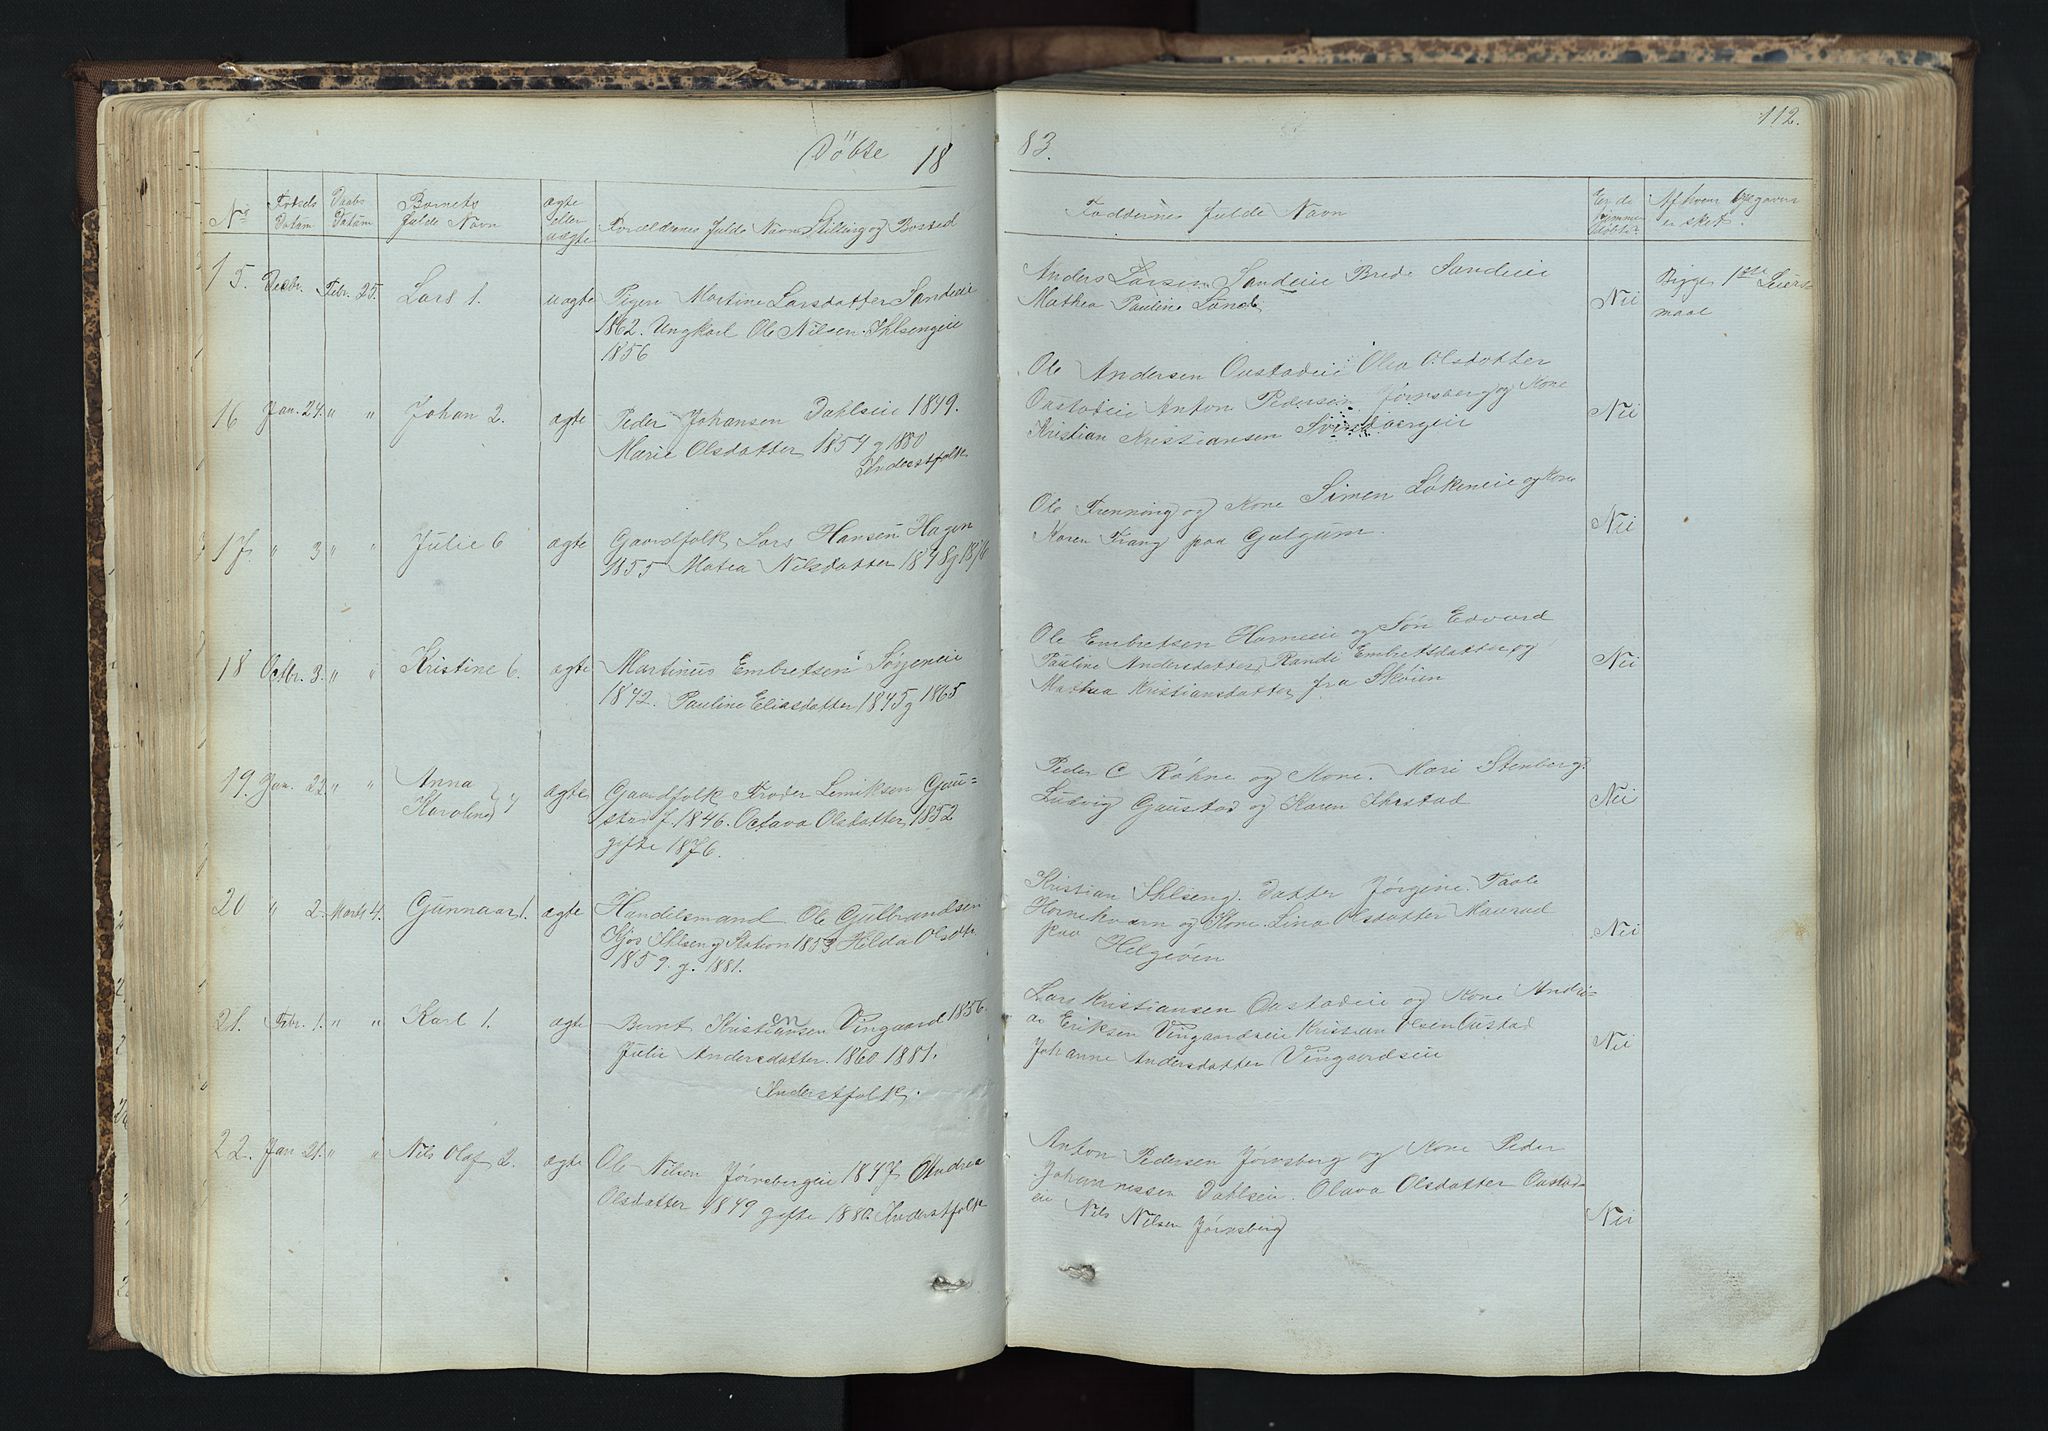 112.
Döbte 18 83.
No
Fødsels Datum
Daabs Datum
Barnets fulde Navn
ægte eller uægte
Forældrenes fulde Navn Stilling og Bosted
Faddernes fulde Navn
Er de vaccinerede
Af hvem Opgaven er sket.
15. Decbr. Febr. 25. Lars 1. uægte Pigen Martine Larsdatter Sandeie
1862. Ungkarl Ole Nilsen Ihlsengeie
1856
Anders Larsen Sandeie Brede Sandeie
Mathea Pauline Lund
Nei
Begges 1ste Leiers-
maal
16 Jan. 24. " " Johan 2. ægte Peder Johansen Dahlseie 1849.
Marie Olsdatter 1854 g 1880
Inderstfolk
Ole Andersen Oustadeie Olea Olsdatter
Oustadeie Anton Pedersen Jørnsberg og Kone
Kristian Kristiansen
Nei
17. " 3 " " Julie 6 ægte Gaardfolk Lars Hansen Hagen
1855 Matea Nilsdatter 1848 g 1876
Ole Frenning og Kone Simen Løkeneie og Kone
Karen Frang paa Galgum.
Nei
18 Octbr. 3. " " Kristine 6. ægte Martinus Embretsen Sørjeneie
1842. Pauline Eliasdatter 1845 g 1865
Ole Embretsen Horneseie og Søn Edvard
Pauline Andersdatter, Randi Embretsdatter og
Mathea Kristiansdatter fra Skøien
Nei
19. Jan. 22 " " Anna
Karoline } 4 ægte Gaardfolk Frøder Lemiksen Gau=
stad f. 1846. Octava Olsdatter 1852
gifte 1876.
Peder C Røhne og Kone. Mari Stenberg.
Ludvig Gaustad og Karen Ihrstad
Nei
20 " 2. Marts 4. Gunnaar 1. ægte Handelsmand Ole Gulbrandsen
Kjos Ihlseng Station 1853 Hilda Olsdtr
1859. g. 1881.
Kristian Ihlseng. Datter Jørgine. Taale
Hornekværn og Kone. Lina Olsdatter Maurud
paa Helgeøen
Nei
21. Febr. 1. " " Karl 1. ægte Bernt Kristiansen Vingaard 1856.
Julie Andersdatter. 1860 1881.
Inderstfolk.
Lars Kristiansen Oustadeie og Kone Andre-
as Eriksen Vingaardseie Kristian Olsen Oustad
Johanne Andersdatter Vingaardseie
Nei
22. Jan 21. " " Nils Olaf 2. ægte Ole Nilsen Jørnsbergeie 1847 Andrea
Olsdatter 1849 gifte 1880 Inderstfolk
Anton Pedersen Jørnsberg og Kone Peder
Johannessen Dahlseie. Olava Olsdatter Oustad-
eie Nils Nilsen Jørnsberg
Nei